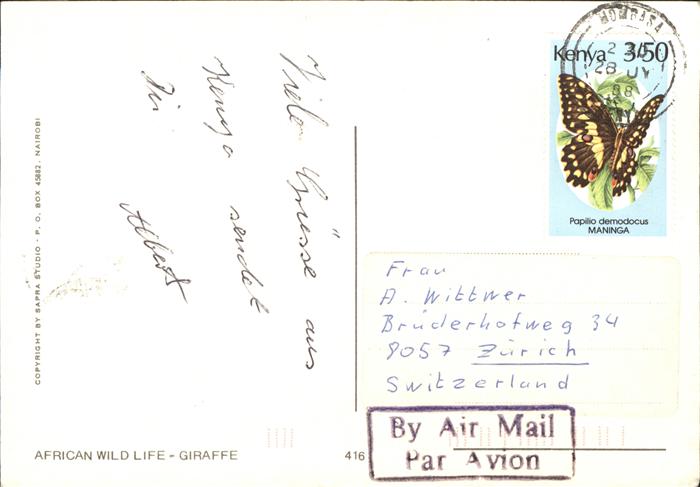 Viele Grüsse aus
Kenya sendet
Dir
Albert
COPYRIGHT BY SAPRA STUDIO - P. O. BOX 45882. NAIROBI
AFRICAN WILD LIFE - GIRAFFE
416
MOMBASA
28 JY
88
Kenya 3/50
Papilio demodocus
MANINGA
Frau
A. Wittwer
Brüderhofweg 34
8057 Zürich
Switzerland
By Air Mail
Par Avion